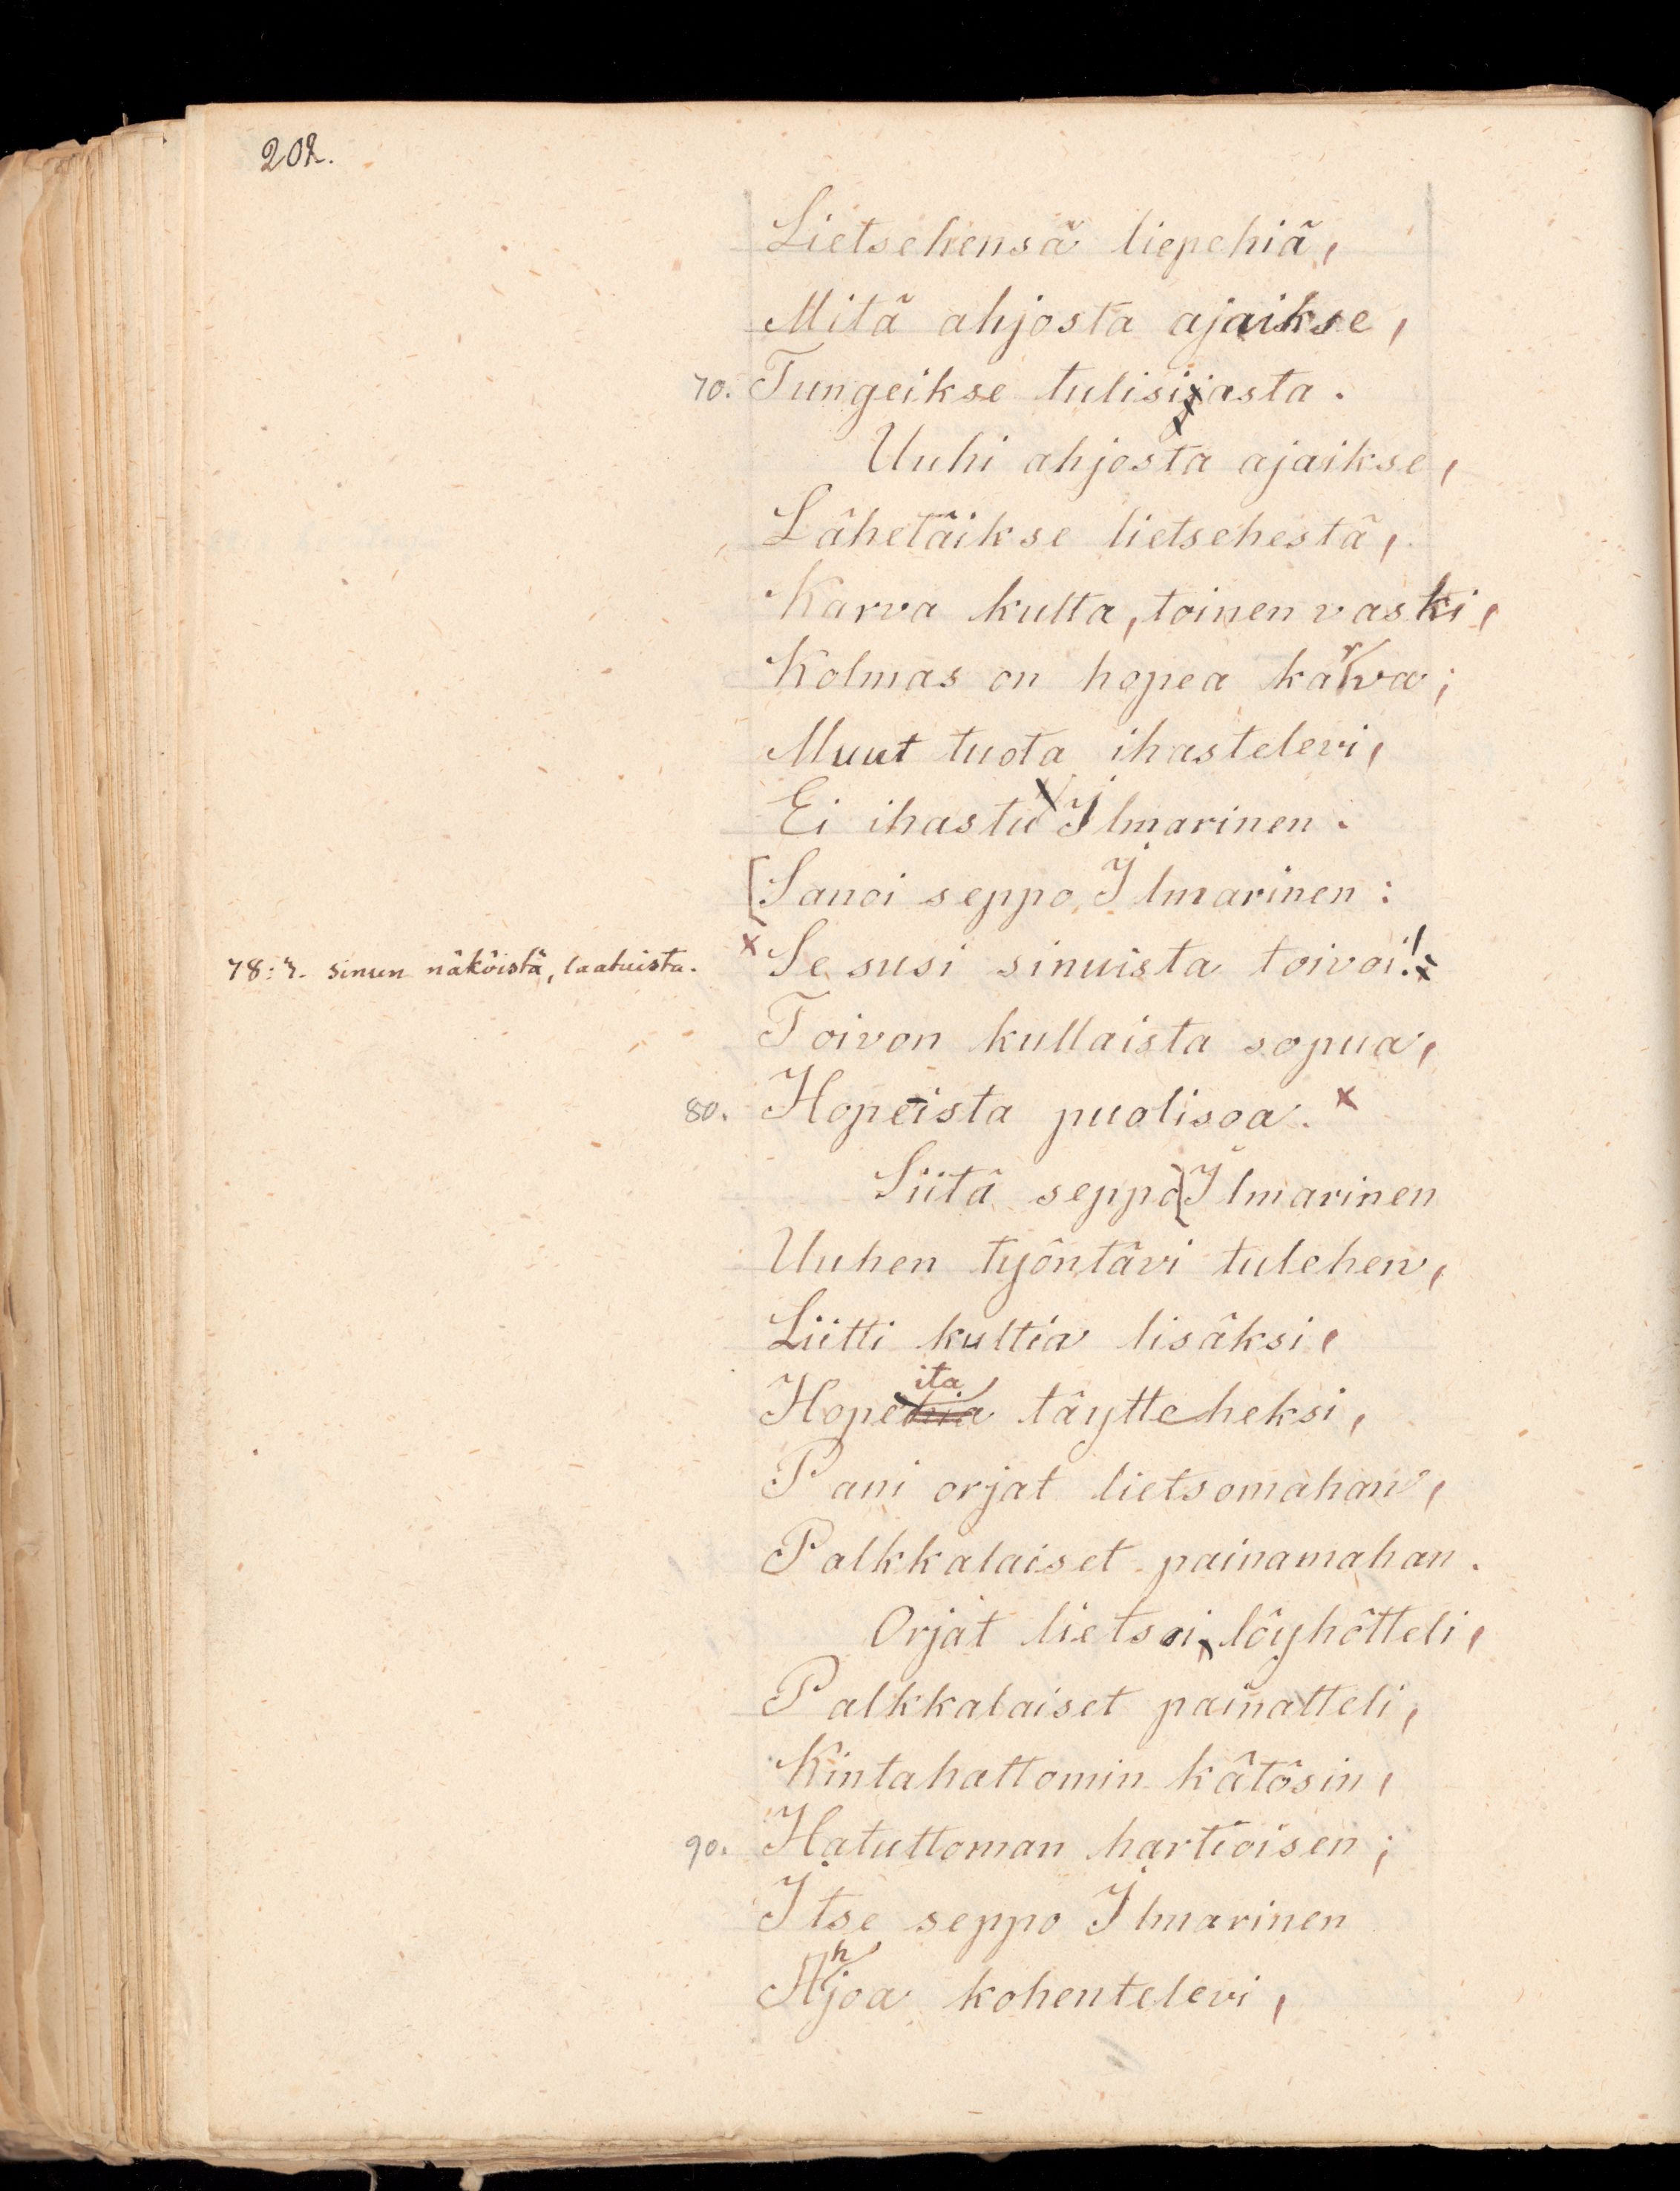 202.
Lietsehensä liepehiä,
Mitä ahjosta ajaikse,
70. Tungeikse tulisijasta.
Uuhi ahjosta ajaikse,
Lähetäikse lietsehestä,
Karva kulta, toinen vaski,
Kolmas on hopea karva;
Muut tuota ihastelevi,
Ei ihastu Ilmarinen.
[Sanoi seppo Ilmarinen:
78: 7. sinun näköistä, laatuista. x Se susi sinuista toivoi!
Toivon kullaista sopua,
80. Hopeista puolisoa. x
Siitä seppo [Ilmarinen
Uuhen työntävi tulehen,
Liitti kultia lisäksi,
Hopeita täytteheksi,
Pani orjat lietsomahan,
Palkkalaiset painamahan.
Orjat lietsoi löyhötteli,
Palkkalaiset painatteli,
Kintahattomin kätösin,
90. Hatuttoman hartioisen;
Itse seppo Ilmarinen
Ahjoa kohentelevi,